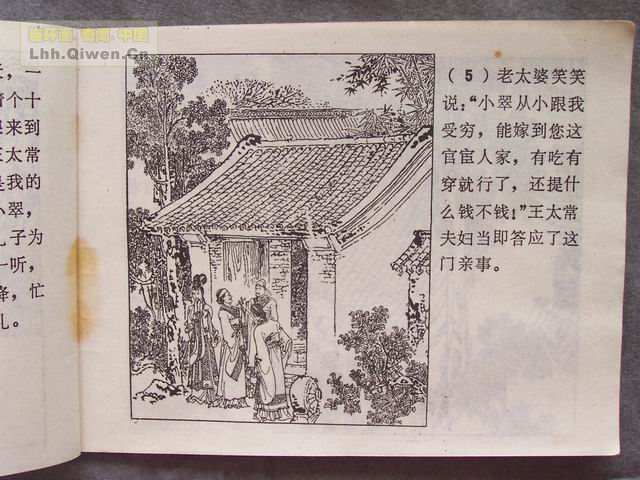 连环画·奇闻·中国
Lhh.Qiwen.Cn
，一
个十
来到
王太常
是我的
小翠，
儿子为
一听，
，忙
礼。
（5）老太婆笑笑
说：“小翠从小跟我
受穷，能嫁到您这
官宦人家，有吃有
穿就行了，还提什
么钱不钱！”王太常
夫妇当即答应了这
门亲事。